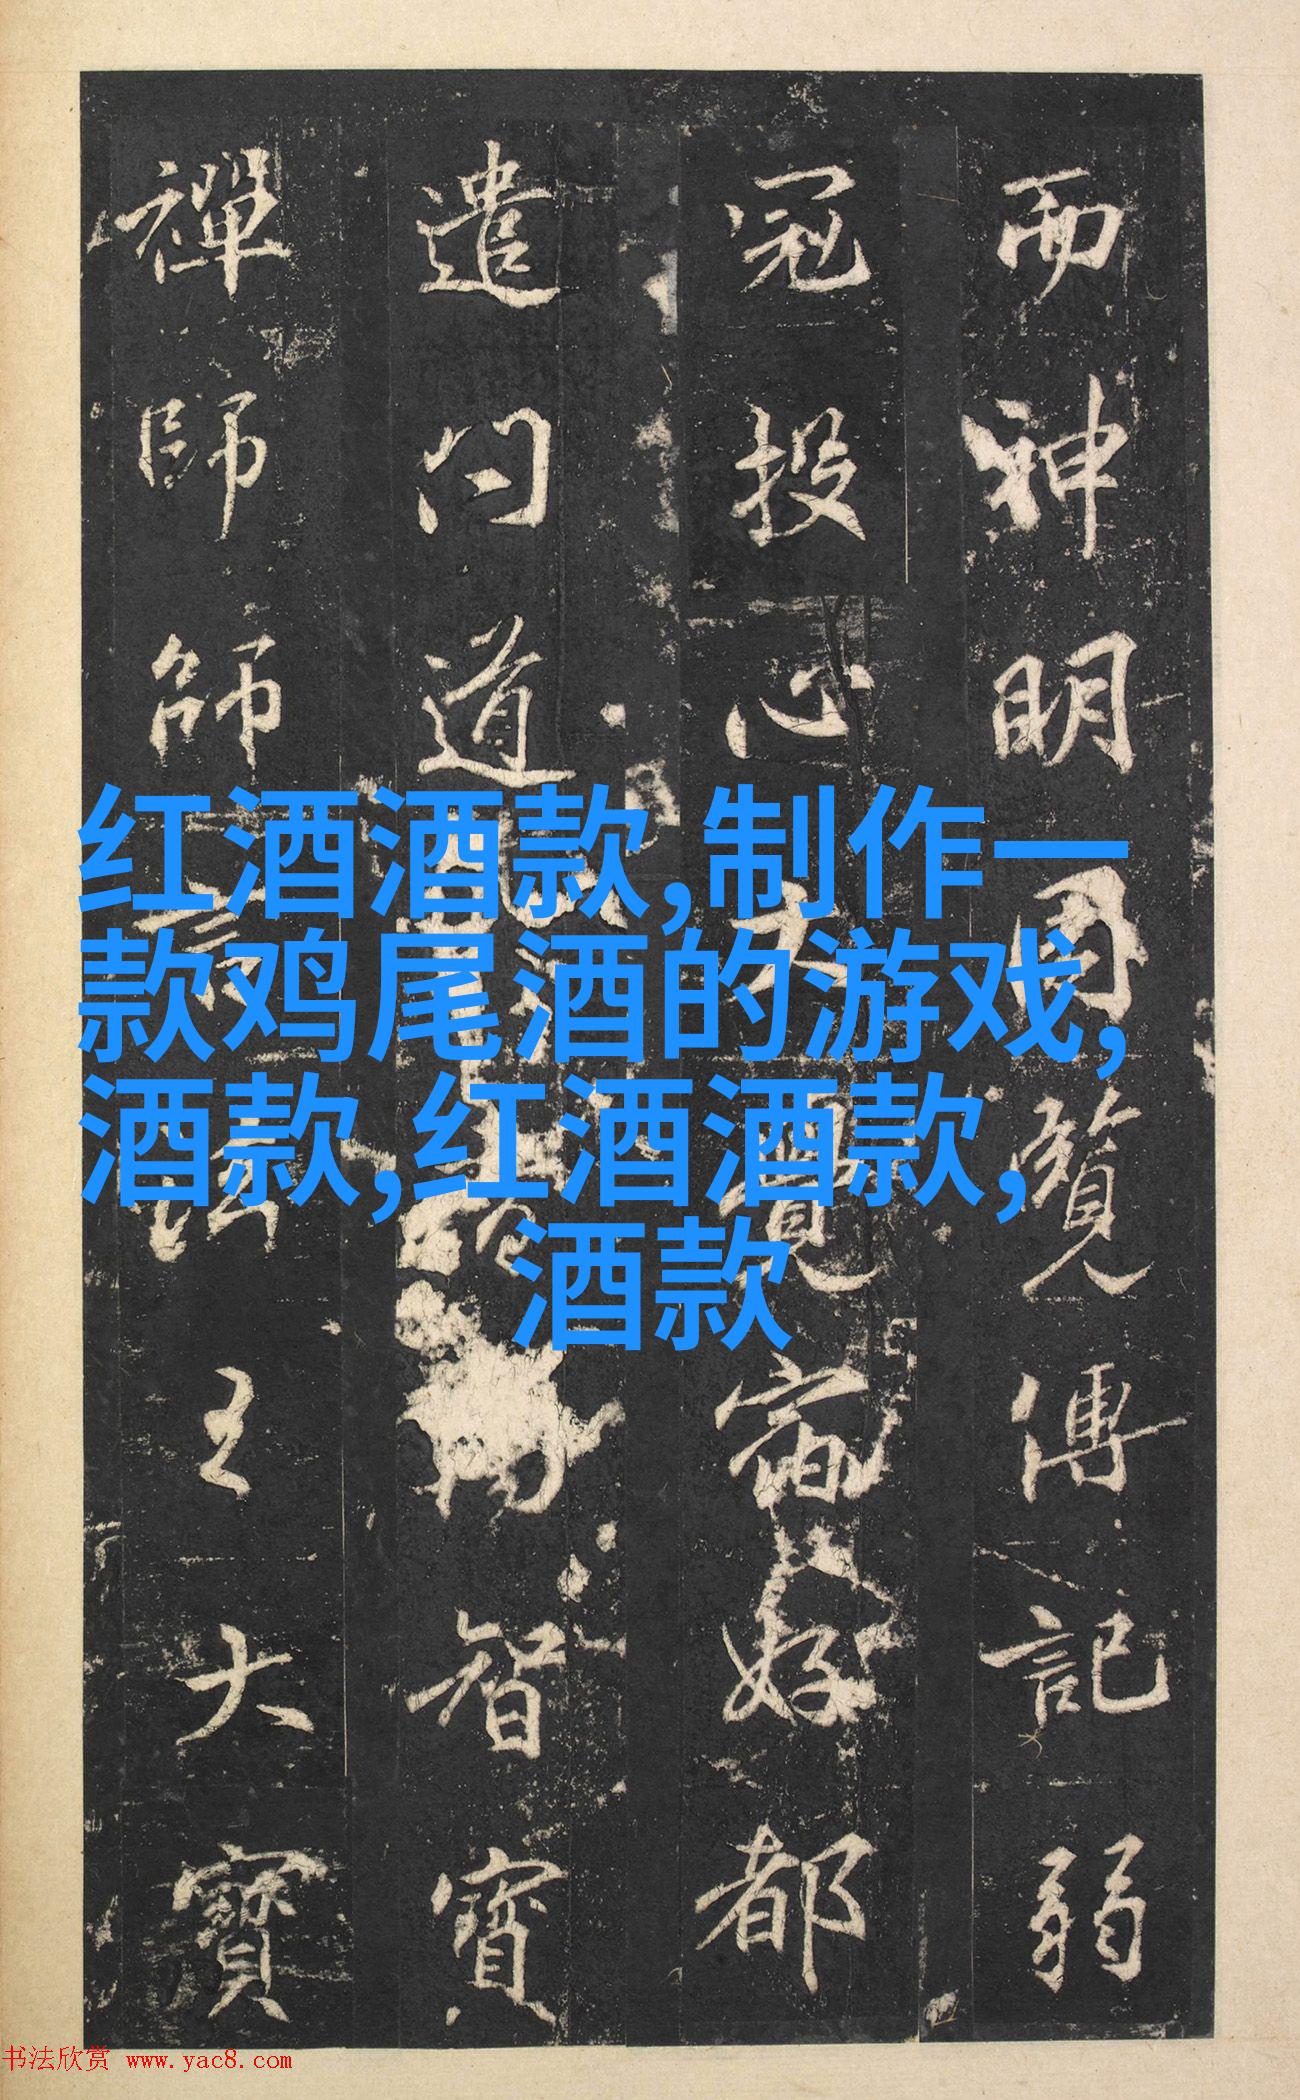 而神明覽傳記弱
冠投心大覺宿好都
遣問道智寶
禪師師王大寶
红酒酒款,制作一
款鸡尾酒的游戏,
酒款,红酒酒款,
酒款
书法欣赏 www.yac8.com